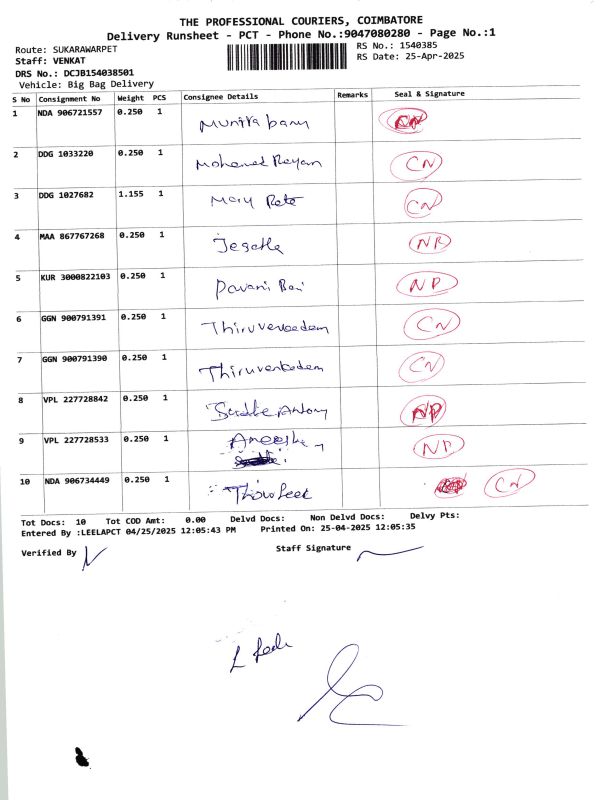 THE PROFESSIONAL COURIERS, COIMBATORE
Delivery Runsheet - PCT - Phone No.:9047080280 - Page No.:1
Route: SUKARAWARPET
RS No.: 1540385
Staff: VENKAT
RS Date: 25-Apr-2025
DRS No.: DCJB154038501
Vehicle: Big Bag Delivery
S No Consignment No Weight PCS Consignee Details Remarks Seal & Signature
1 NDA 906721557 0.250 1 Munira banu
2 DDG 1033220 0.250 1 Mohamed Rayan CN
3 DDG 1027682 1.155 1 Mary CN
4 MAA 867767268 0.250 1 NR
5 KUR 3000822103 0.250 1 Pavani Bai NP
6 GGN 900791391 0.250 1 Thiruvenkadam CN
7 GGN 900791390 0.250 1 Thiruvenkadam CN
8 VPL 227728842 0.250 1 Antony NP
9 VPL 227728533 0.250 1 NP
10 NDA 906734449 0.250 1 CN
Tot Docs: 10 Tot COD Amt: 0.00 Delvd Docs: Non Delvd Docs: Delvy Pts:
Entered By :LEELAPCT 04/25/2025 12:05:43 PM Printed On: 25-04-2025 12:05:35
Verified By
Staff Signature